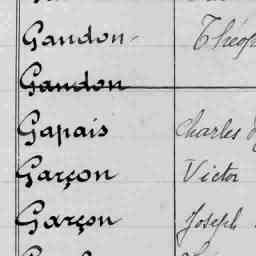 Gandon
Gandon
Gapais Charles
Garçon Victor
Garçon Joseph